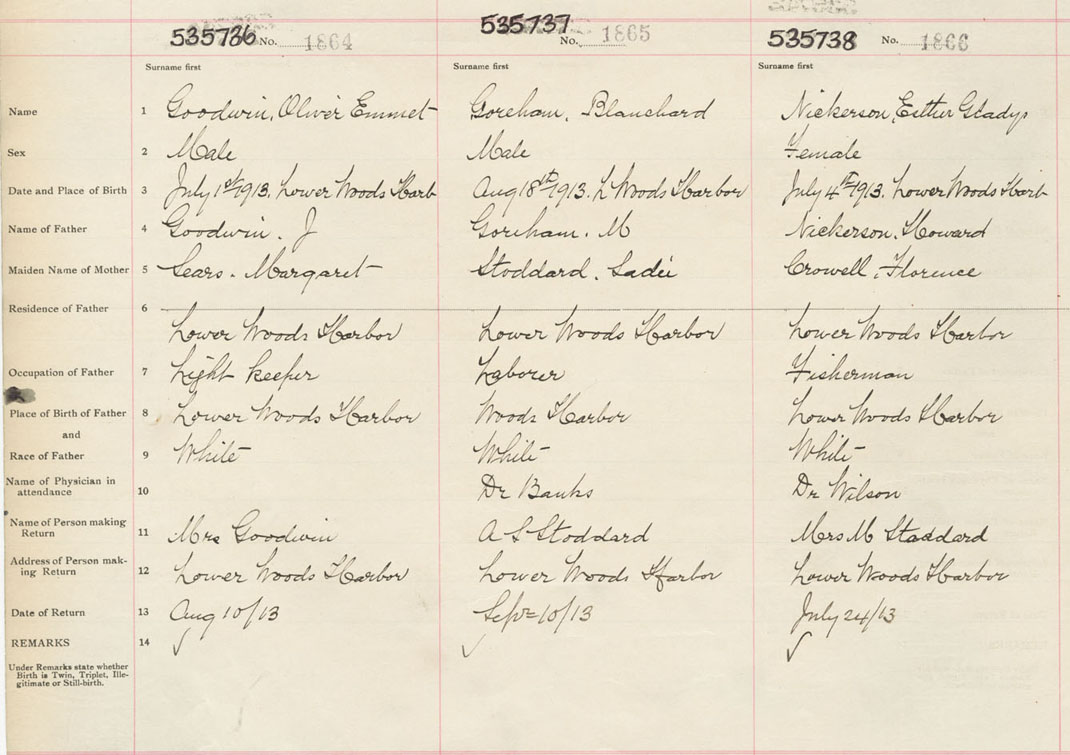 535736 No. 1864 535737 No. 1865 535738 No. 1866
Surname first Surname first Surname first
Name 1 Goodwin, Oliver Emmet Goreham, Blanchard Nickerson, Esther Gladys
Sex 2 Male Male Female
Date and Place of Birth 3 July 1st 1913. Lower Woods Harb Aug 18th 1913. L Woods Harbor July 4th 1913. Lower Woods Harb
Name of Father 4 Goodwin. J Goreham. M Nickerson. Howard
Maiden Name of Mother 5 Sears. Margaret Stoddard. Sadie Crowell, Florence
Residence of Father 6
Lower Woods Harbor Lower Woods Harbor Lower Woods Harbor
Occupation of Father 7 Light keeper Laborer Fisherman
Place of Birth of Father 8 Lower Woods Harbor Woods Harbor Lower Woods Harbor
and
Race of Father 9 White White White
Name of Physician in
attendance 10 Dr Banks Dr Wilson
Name of Person making
Return 11 Mrs Goodwin A S Stoddard Mrs M Stoddard
Address of Person mak-
ing Return 12 Lower Woods Harbor Lower Woods Harbor Lower Woods Harbor
Date of Return 13 Aug 10/13 Sept 10/13 July 24/13
REMARKS 14
Under Remarks state whether
Birth is Twin, Triplet, Ille-
gitimate or Still-birth.